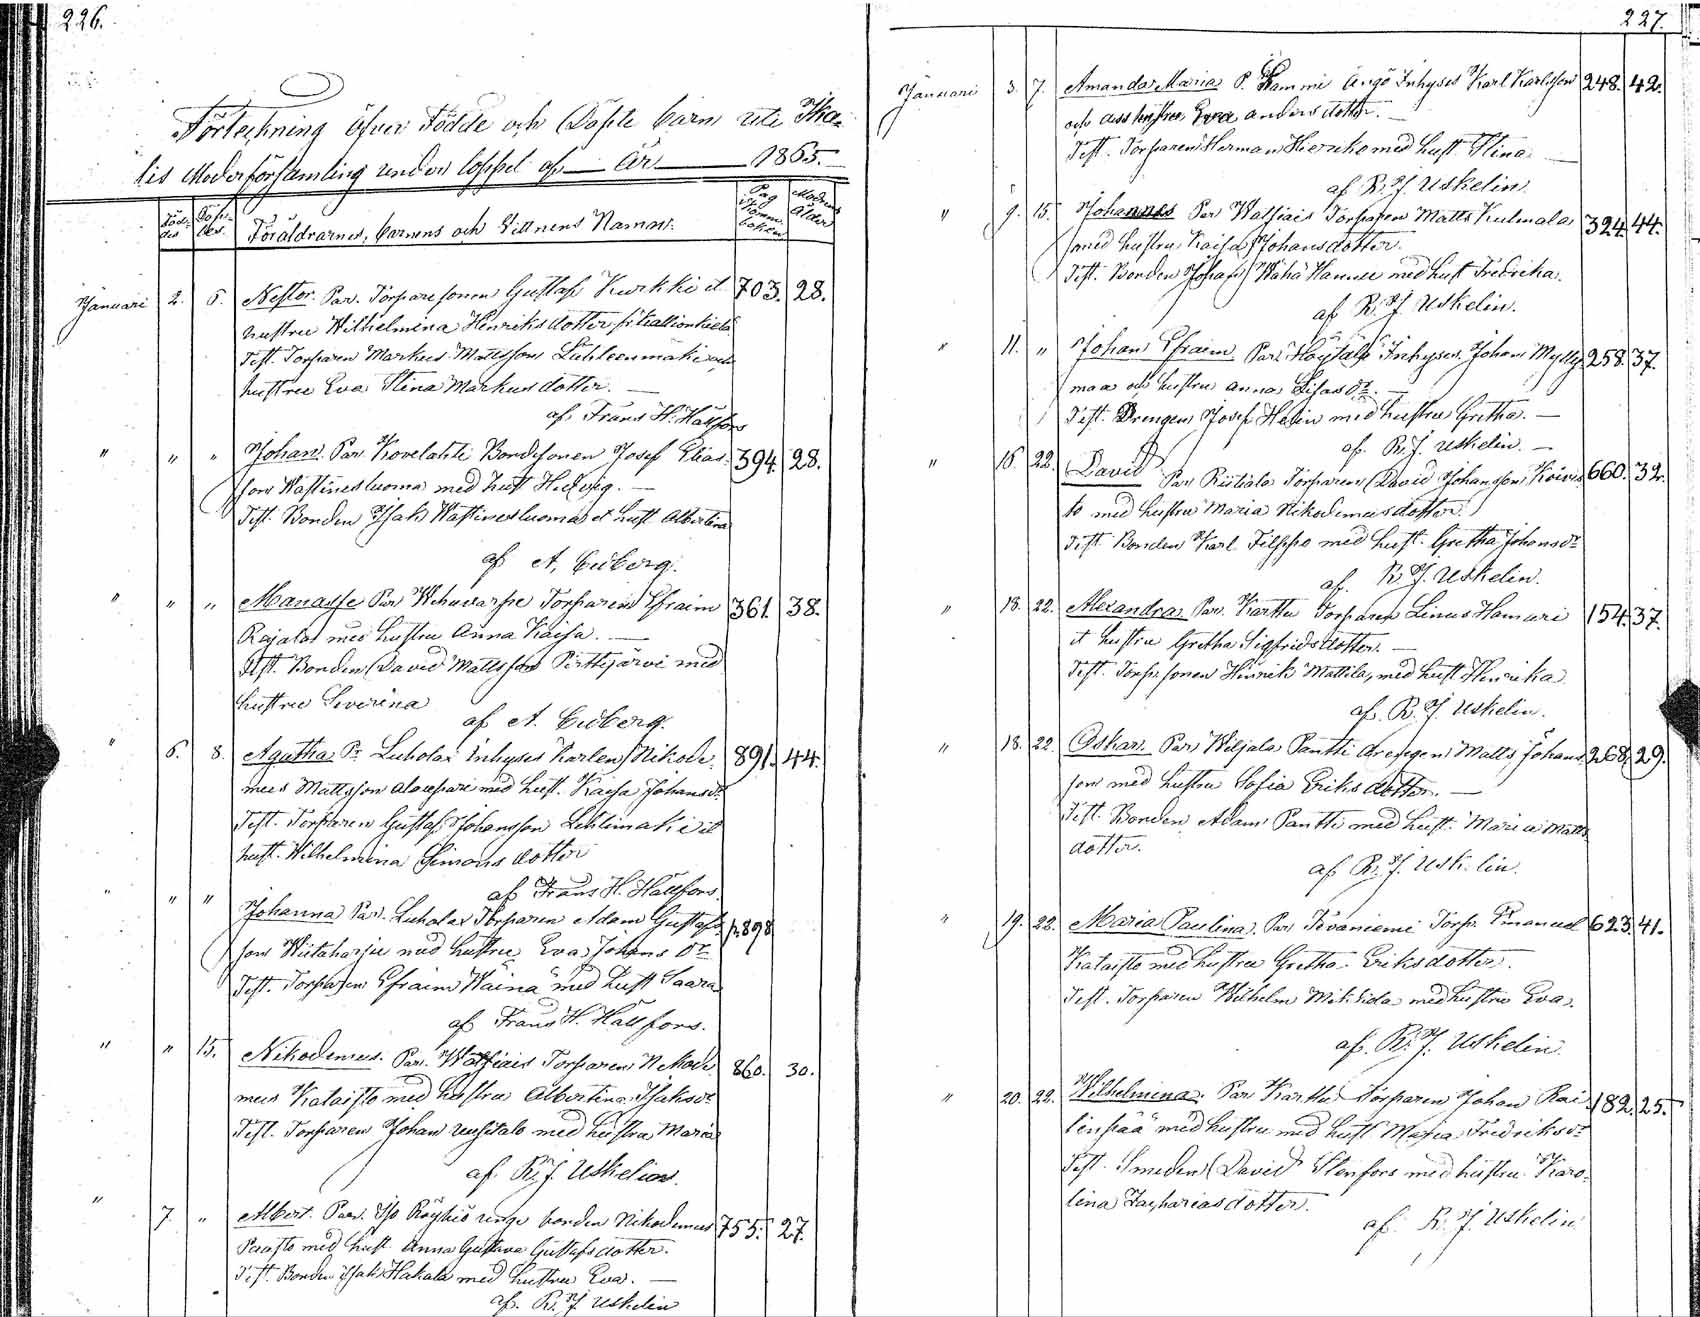 226.
Förteckning öfver Födde och Döpte barn uti Ika-
lis Moderförsamling under loppet af år 1865.
Föd-
des
Döp-
tes
Föräldrarnes, barnens och Vittnens Namn.
Pag
Komm
boken
Modrens
Ålder
Januari 2. 6. Nestor. Par. Torparesonen Gustaf Kurkki et 703. 28.
hustru Wilhelmina Henriksdotter
Test. Torparen Markus Mattsson och
hustru Eva Stina Markusdotter.
af Frans H. Hällfors
" " " Johan. Par. Kovelahti Bondesonen Josef Elias- 394. 28.
son Wästinesluoma med hust Hedvig.
Test. Bonden Isak Wästinesluoma et hust Albertina
af A. Ceder​berg.
" " " Manasse Par Torparen Efraim 361. 38.
Rajala med hustru Anna Kaisa.
Test. Bonden David Mattsson Perttijärvi med
hustru Severina
af A.
" 6. 8. Agatha Pr Luhalax Inhyses Karlen Nikode- 891. 44.
mus Mattsson med hust. Kaisa Johansdr
Test. Torparen Gustaf Johansson Lehtimäki et
hust. Wilhelmina Simonsdotter
af Frans H. Hällfors.
" " " Johanna Par. Luhalax Torparen Adam Gustafs- p. 898
son Wiitaharju med hustru Eva Johans Dr
Test. Torparen Efraim Wäinä med hust Saara
af Frans H. Hällfors.
" " 15. Nikodemus. Par. Torparen Nikode- 860. 30.
mus Kataisto med hustru Albertina Isaksdr
Test. Torparen Johan Uusitalo med hustru Maria
af R. J. Uskelin.
" 7. " Albert. Par. Iso Röyhiö unge bonden Nikodemus 755. 27.
med hust. Anna Gustava Gustafsdotter.
Test. Bonden Isak Hakala med hustru Eva.
af. R. J. Uskelin
227.
Januari 3. 7. Amanda Maria P. Inhyses Karl Karlsson 248. 42.
och hustru Eva andersdotter.
Test. Torparen Herman med hust Stina
af R. J. Uskelin.
" 9. 15. Johannes Par Torparen Matts Kulmala 324. 44.
med hustru Kaisa Johansdotter.
Test. Bonden Johan Wähä Hannu med hust Fredrika.
af R. J. Uskelin.
" 11. " Johan Efraim Par. Inhyses. Johan Mylly- 258. 37.
maa och hustru Anna Lisasdr.
Test. Drengen Josef Helin med hustru Gretha.
af. R. J. Uskelin.
" 16. 22. David Par Riitiala Torparen David Johansson Koivis- 660. 32.
to med hustru Maria Nikodemusdotter.
Test. Bonden Karl Filppo med hust. Gretha Johansdr
af. R. J. Uskelin.
" 18. 22. Alexandra. Par. Karttu Torparen Linus Hamari 154. 37.
et hustru Gretha Sigfridsdotter.
Test. Torpsonen Hinrik Mattila, med hust Henrika
af. R. J. Uskelin.
" 18. 22. Oskar. Par Wiljala Pantti drengen Matts Johans- 268. 29.
son med hustru Sofia Eriksdotter.
Test. Bonden Adam Pantti med hust. Maria Matts-
dotter.
af R. J. Uskelin.
" 19. 22. Maria Paulina. Par Tevaniemi Torp. Emanuel 623. 41.
Kataisto med hustru Gretha Eriksdotter.
Test. Torparen Wilhelm med hustru Eva.
af. R. J. Uskelin.
" 20. 22. Wilhelmina. Par Karttu Torparen Johan Rai- 182. 25.
linpää med hustru med hust Maria Fredriksdr
Test. Smeden David Stenfors med hustru Karo-
lina Zachariasdotter.
af. R. J. Uskelin